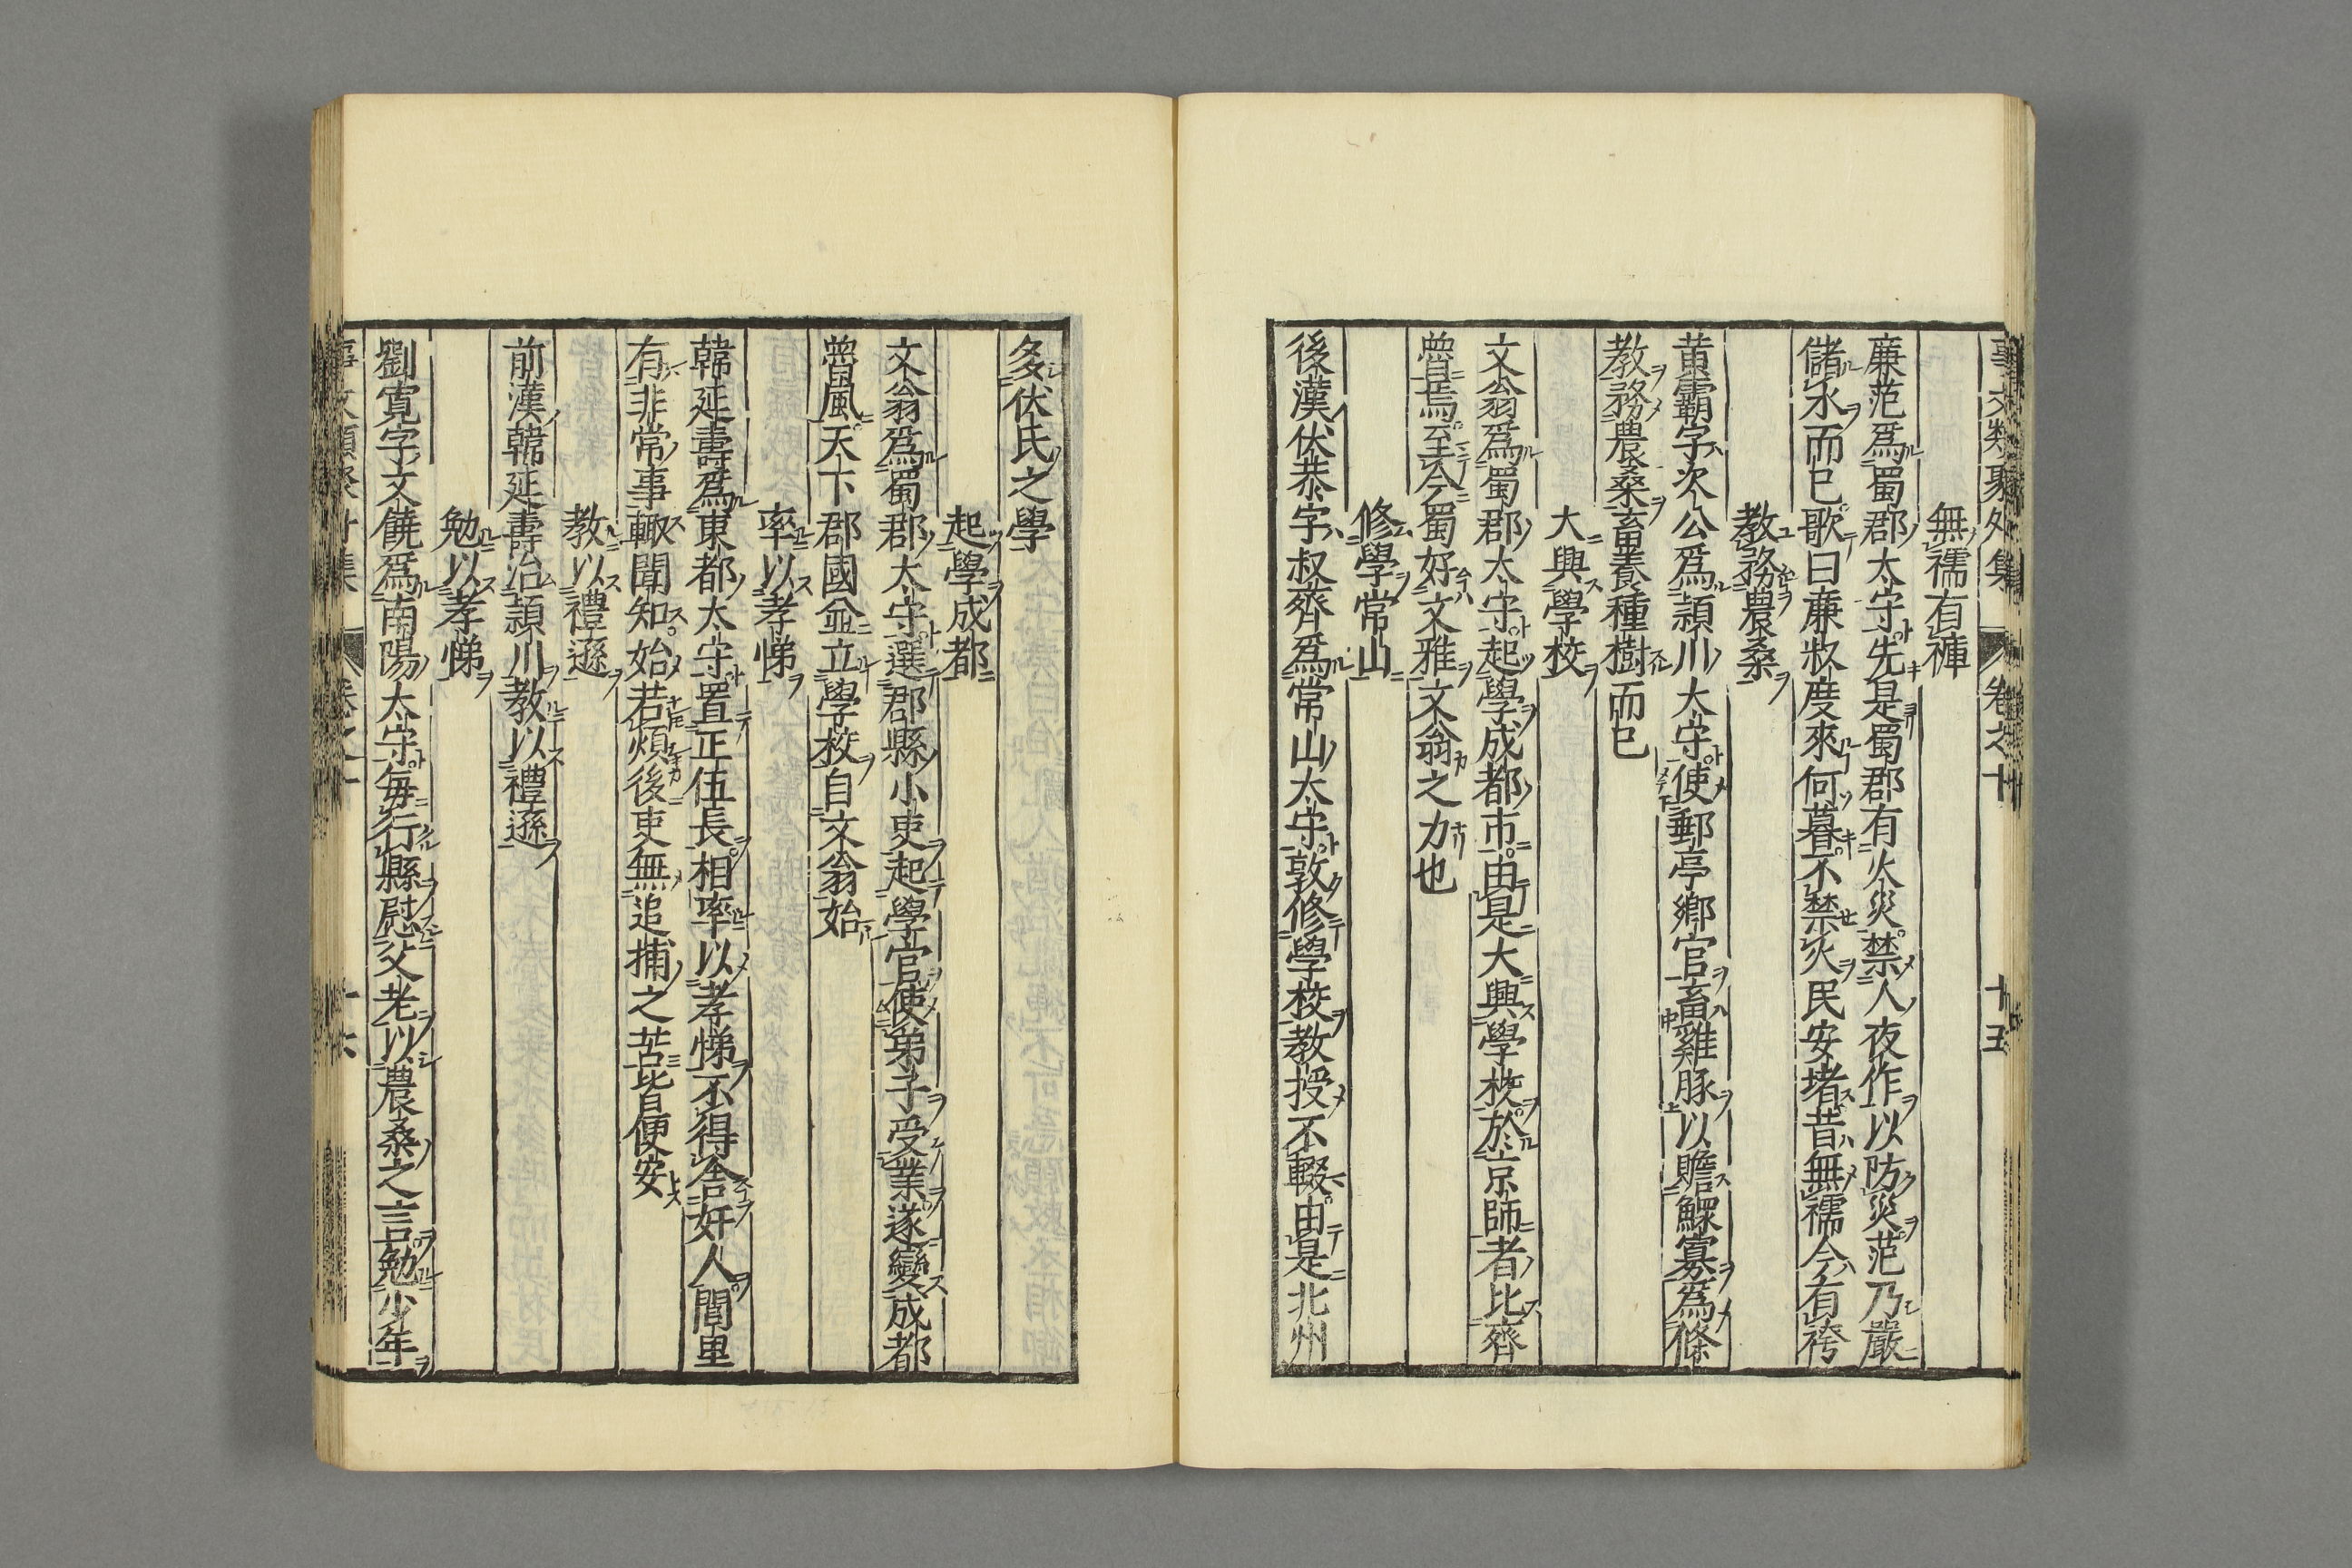 事文類聚外集 卷之十 十五
無襦有褲
廉范爲蜀郡太守先是蜀郡有火災禁人夜作以防災范乃嚴
儲水而已歌曰廉叔度來何暮不禁火民安堵昔無襦今有袴
教務農桑
黄霸字次公爲潁川太守使郵亭鄉官畜雞豚以贍鰥寡爲條
教務農桑畜養種樹而已
大興學校
文翁爲蜀郡太守起學成都市由是大興學校於京師者比齊
魯焉至今蜀好文雅文翁之力也
修學常山
後漢伏恭字叔齊爲常山太守敦修學校教授不輟由是北州
多伏氏之學
起學成都
文翁爲蜀郡太守選郡縣小吏起學官使弟子受業遂變成都
魯風天下郡國並立學校自文翁始
率以孝悌
韓延壽爲東都太守置正伍長相率以孝悌不得舍奸人閭里
有非常事輙聞知始若煩後吏無追捕之苦皆便安
教以禮遜
前漢韓延壽治潁川教以禮遜
勉以孝悌
劉寛字文饒爲南陽太守每行縣慰父老以農桑之言勉少年